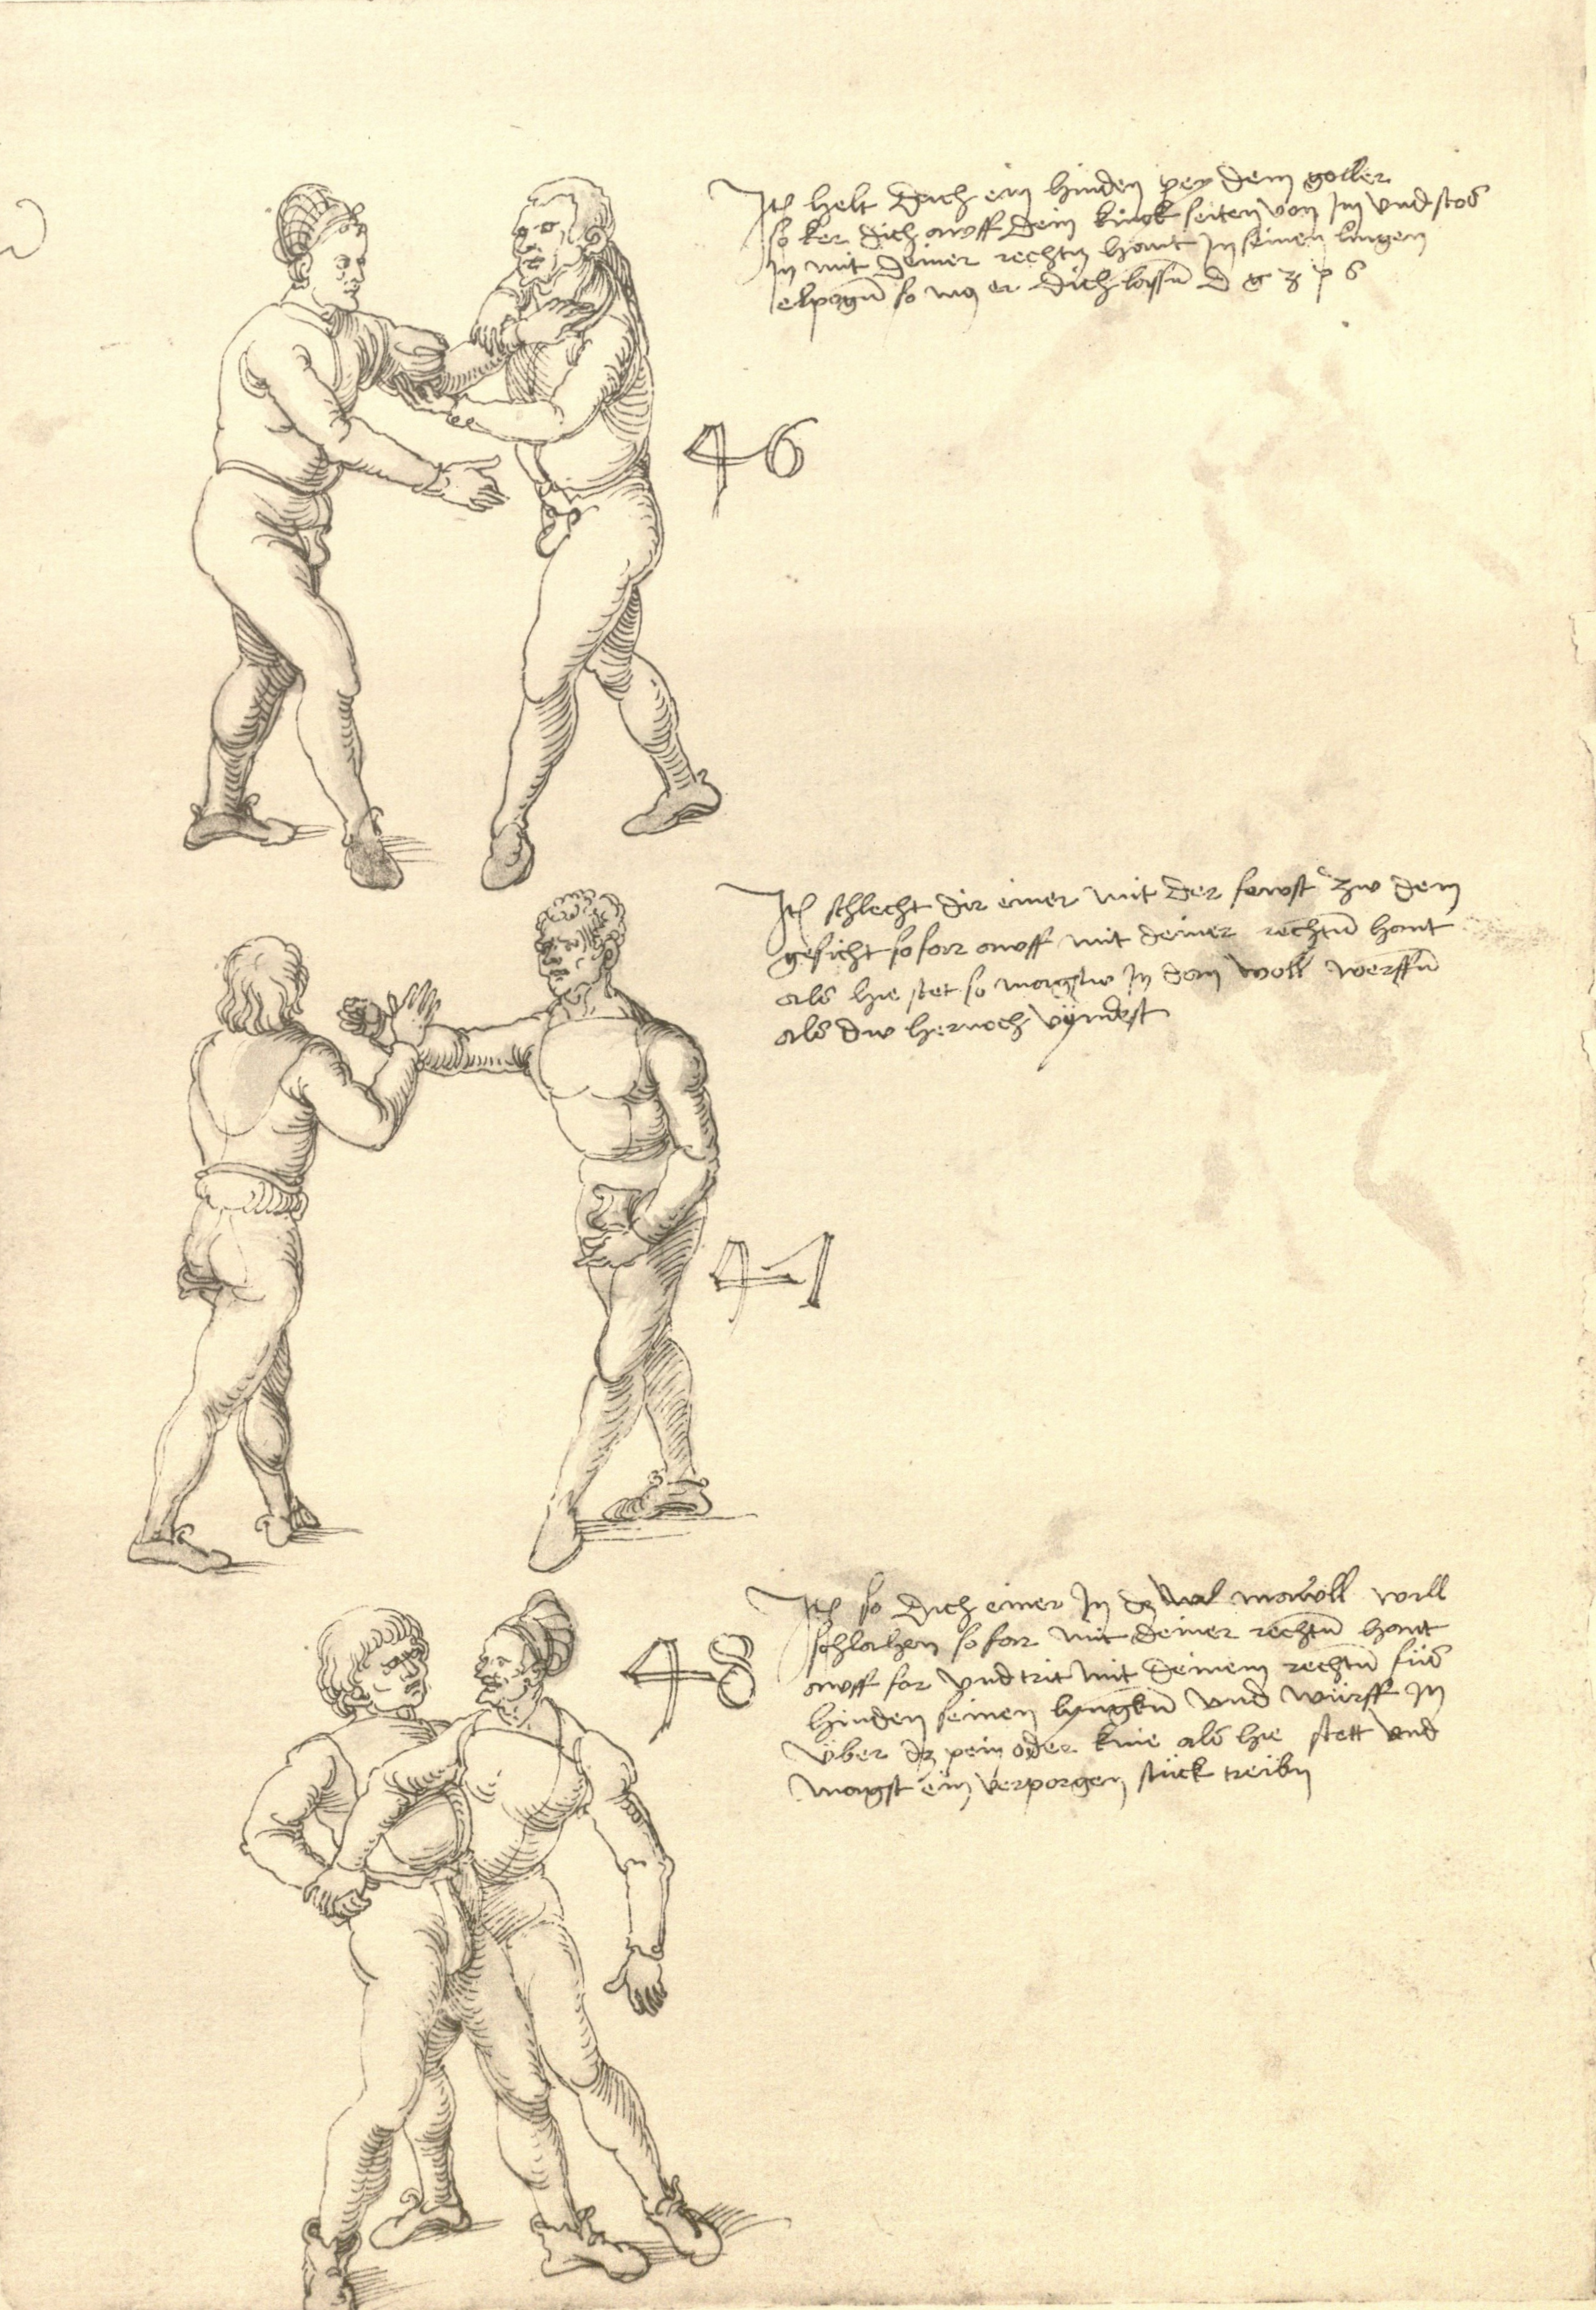 Itē helt dich ein hinden pey dem goller
so ker dich awff dein linck seiten von im vnd stos
in mit deiner rechtn hant in seinen lingen
elpogn̄ so mus er dich lassn̄ D g z p s
46
Itē schlecht dir einer mit der fawst zw dem
gesicht so far awff mit deiner rechtn̄ hant
als hie stet so magstw in dan woll werffn̄
als dw hernoch vÿndest
47
Itē so dich einer in dz mawll will
schlahen so far mit deiner rechtn̄ hant
awff for vnd trit mit deinem rechtn̄ füs
hinden seinen lyngkn̄ vnd würff in
über dz pein oder knie als hie stett vnd
magst ein verporgen stück treibn
48